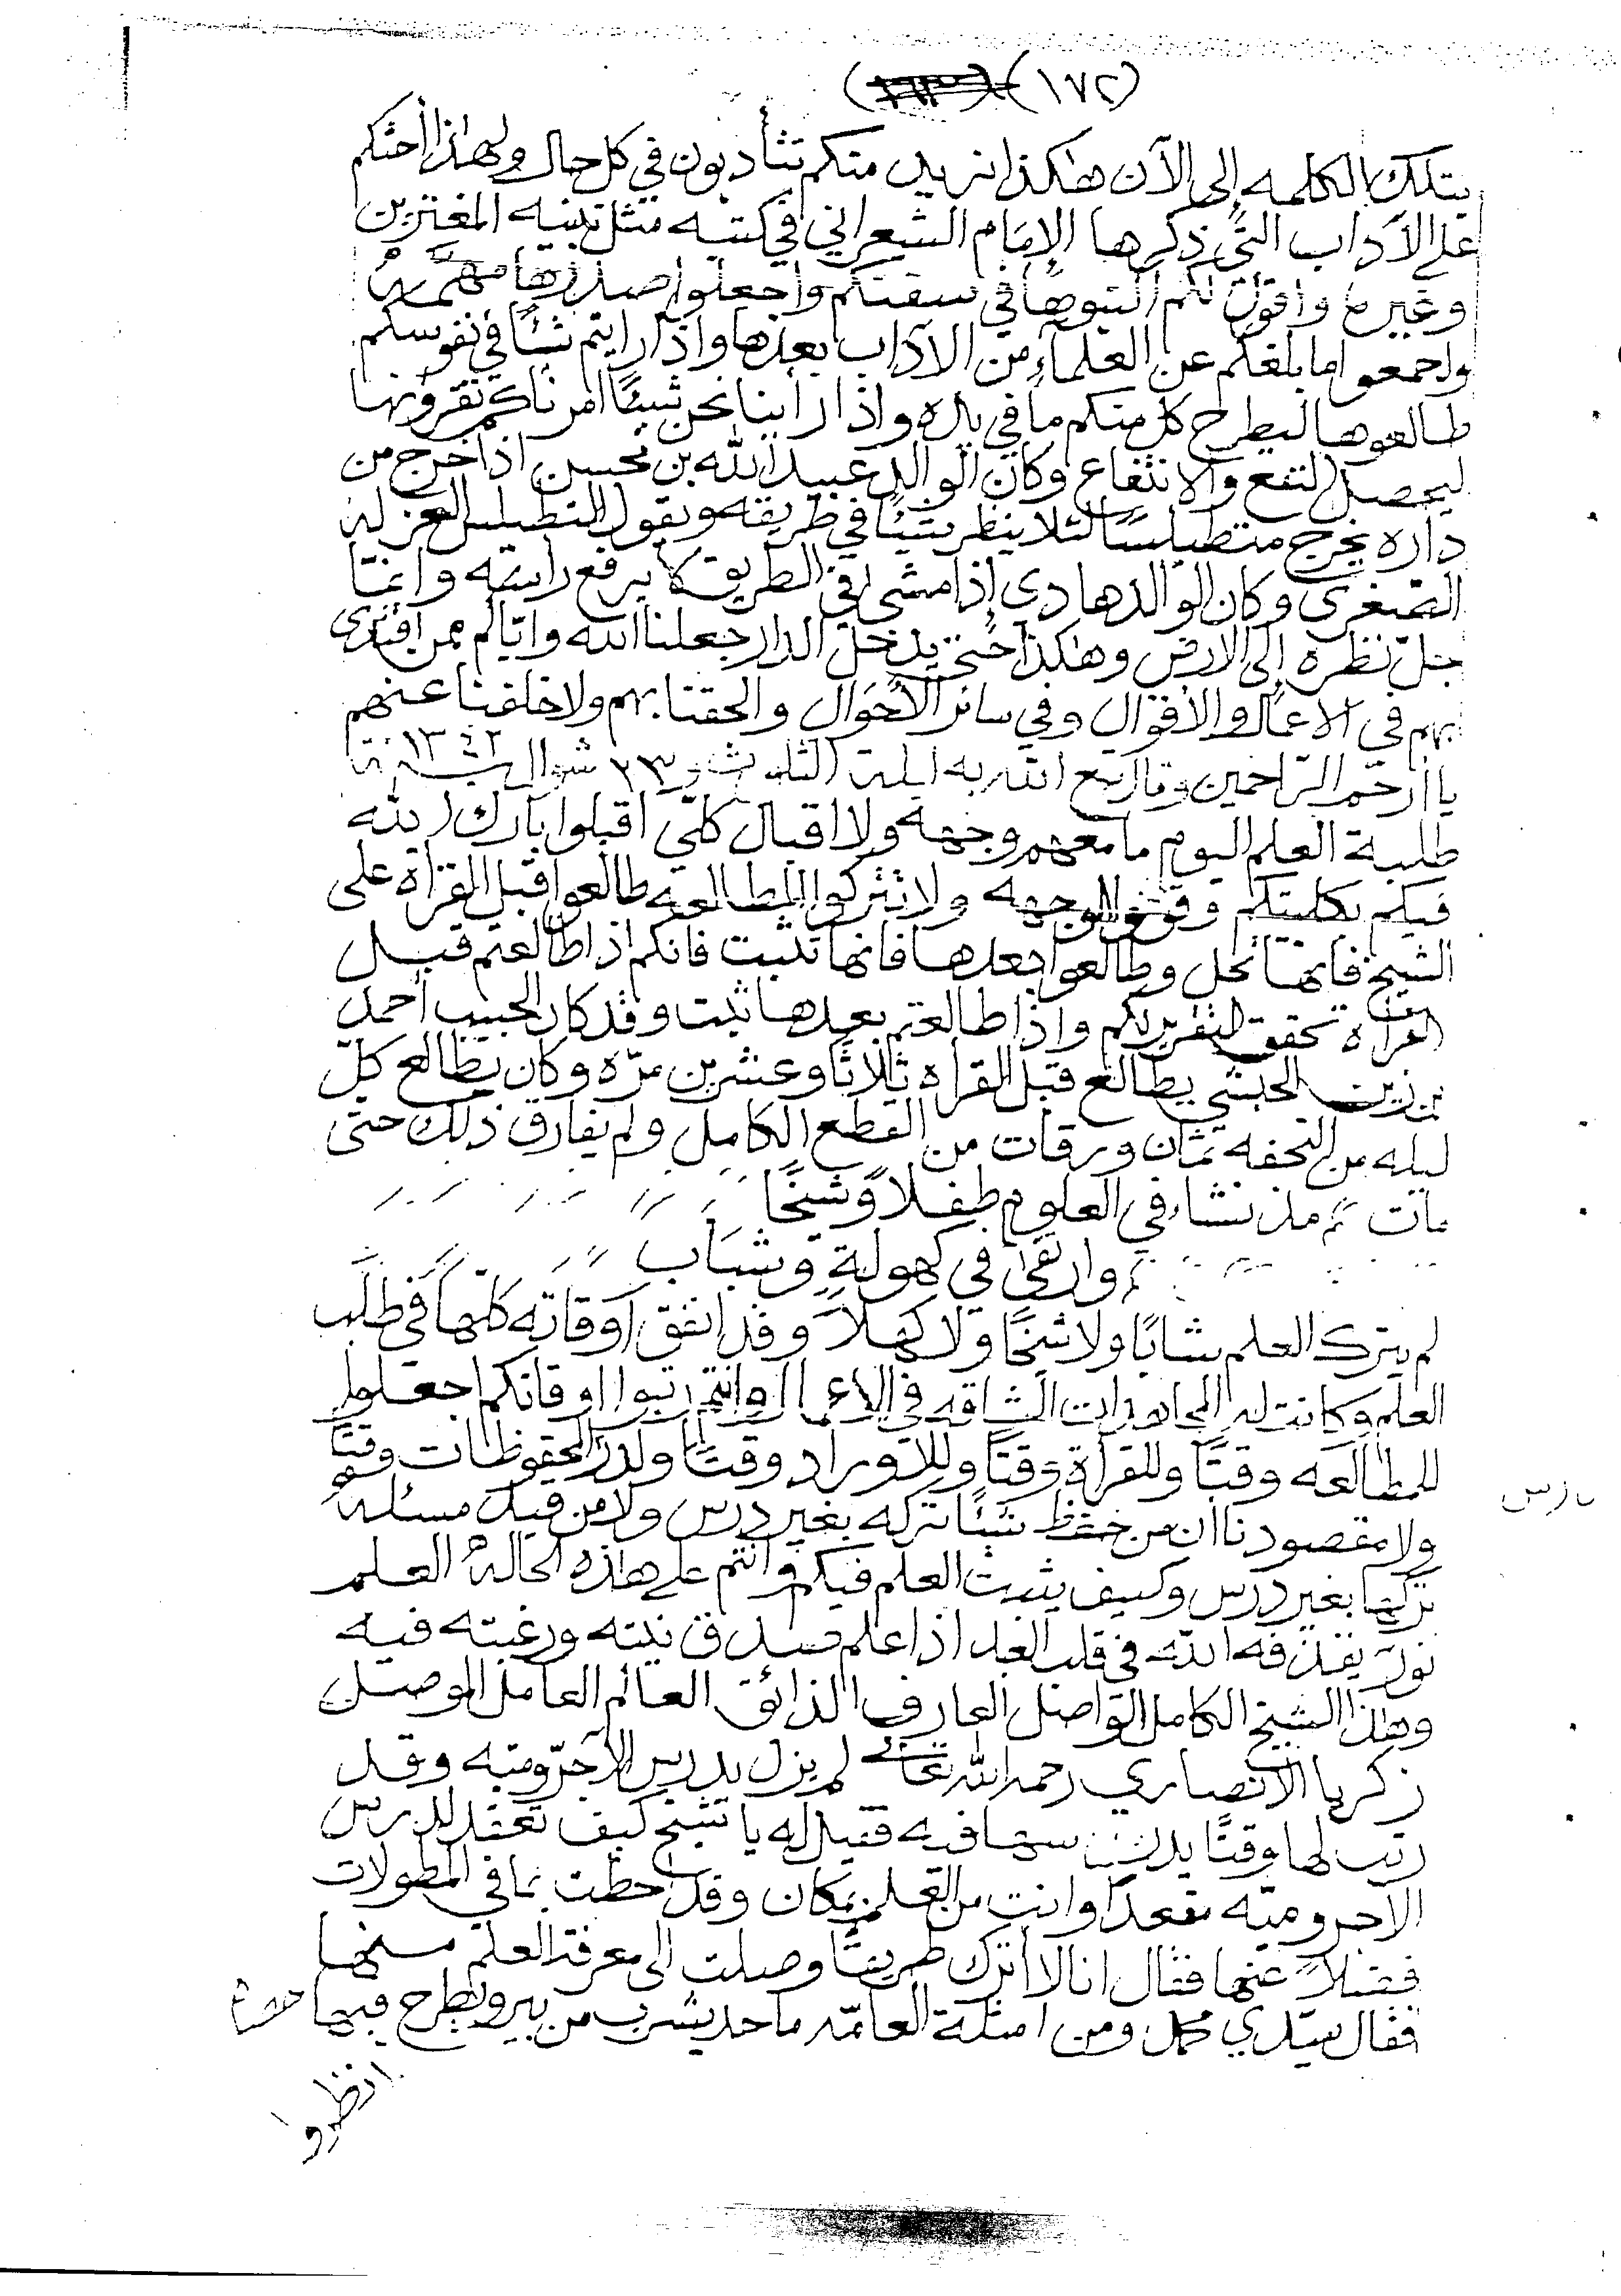 (١٧٢)
بتلك الكلمه إلى الآن هكذا نريد منكم تتأدبون في كل حال ولهذا أحثكم
على الآداب التي ذكرها الإمام الشعراني في كتبه مثل تنبيه المغترين
وغيره واقول لكم اكتبوها في سفنكم واجعلوا صدرها مهمة
واجمعوا ما بلغكم عن العلماء من الآداب بعدها واذا رايتم شئا في نفوسكم
طالعوها ليطرح كل منكم ما في يده واذا رأينا نحن شيئًا امرناكم تقرونها
ليحصل النفع والانتفاع وكان الوالد عبيد الله بن محسن اذا خرج من
داره يخرج متطيلسًا لئلا ينظر شيئًا في طريقه ويقول التطيلس العزله
الصغرى وكان الوالد هادي إذا مشى في الطريق لا يرفع رأسه وانما
جلّ نظره إلى الارض وهكذا حتى يدخل الدار جعلنا الله واياكم ممن اقتدى
بهم في الاعمال والاقوال وفي سائر الأحوال والحقنا بهم ولا خلفنا عنهم
يا أرحم الراحمين وقال متع الله به ليلة الثلوث ٢٣ شوال سنة ١٣٤٢
طلبة العلم اليوم ما معهم وجهه ولا اقبال كلّي اقبلوا بارك الله
فيكم بكليتكم وقوّوا الوجهه ولا تتركوا المطالعه طالعوا قبل القرأة على
الشيخ فانها تحل وطالعوا بعدها فانها تثبت فانكم اذا طالعتم قبل
القرأة تحقق التقرير لكم واذا طالعتم بعدها ثبت وقد كان الحبيب أحمد
بن زين الحبشي يطالع قبل القرأه ثلاثًا وعشرين مرّه وكان يطالع كلّ
ليله من التحفه ثمان ورقات من القطع الكامل ولم يفارق ذلك حتى
مات ثم مذ نشاء في العلوم طفلاً وشيخًا
وارتقى في كهولةٍ وشباب
لم يترك العلم شابًا ولا شيخًا ولا كهلاً وقد انفق أوقاته كلّها في طلب
العلم وكانت له المجاهدات الشاقه في الاعمال وانتم رتبوا اوقاتكم اجعلوا
للمطالعه وقتًا وللقرأة وقتًا وللاوراد وقتًا ولدرس المحفوظات وقتًا
ولا مقصودنا ان من حفظ شيئًا تركه بغير درس ولا من قيد مسئلة
تركها بغير درس وكيف يثبت العلم فيكم وانتم على هذه الحاله العلم
نورٌ يقذفه الله في قلب العبد اذا علم صدق نيته ورغبته فيه
وهذا الشيخ الكامل الواصل العارف الذائق العالم العامل الموصل
زكريا الانصاري رحمه الله تعالى لم يزل يدرس الآجرّوميه وقد
رتب لها وقتًا يدرسها فيه فقيل له يا شيخ كيف تعقد لدرس
الآجروميّه مقعدًا وانت من العلم بمكان وقد احطت بما في المطولات
فضلاً عنها فقال انا لا أترك طريقًا وصلت الى معرفة العلم منها
فقال سيدي محمد ومن امثلة العامّه ما حد يشرب من بير ويطرح فيها
انظروا